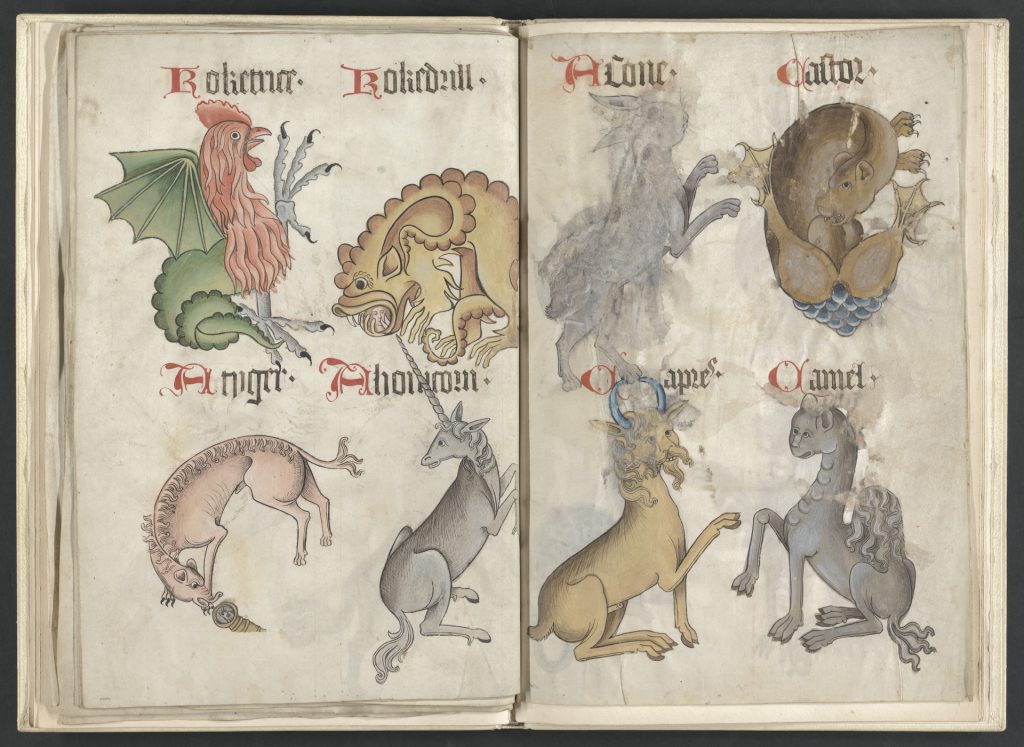 Koketrice · Kokedrill ·
A tyger · A honicorn ·
A Cone · Castor ·
Capres · Camel ·